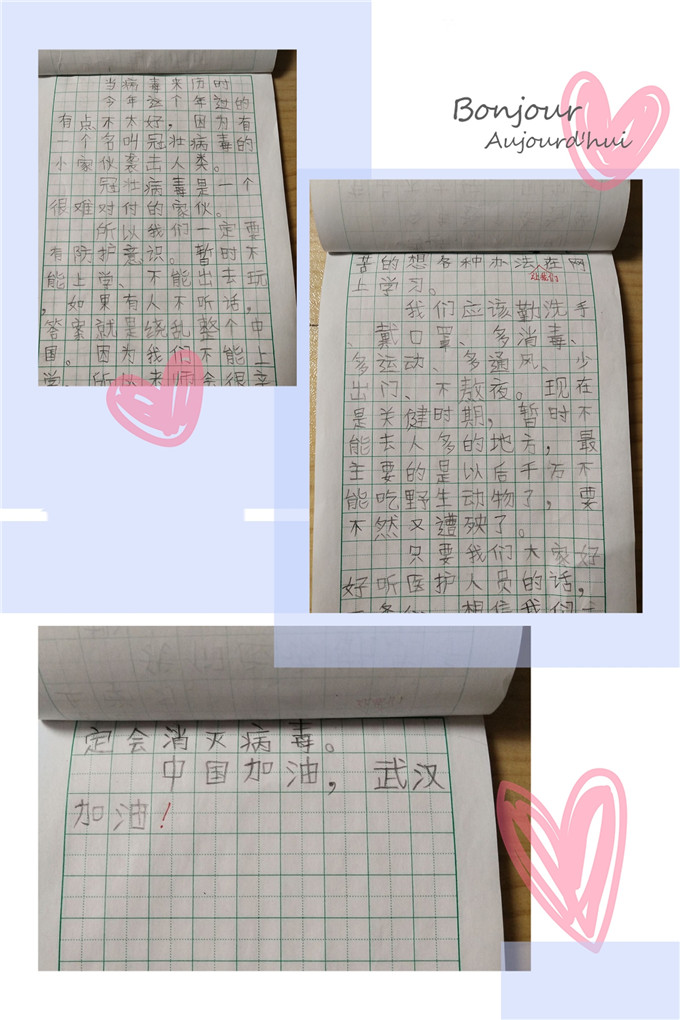 Bonjour
Aujourd'hui
当病毒来历时
今年这个年过的
有点不太好，因为有
一个名叫冠壮病毒的
小家伙袭击人类。
冠壮病毒是一个
很难对付的家伙。
所以我们一定要
有防护意识。暂时不
能上学、不能出去玩
，如果有人不听话，
答案就是绕乱整个中
国。因为我们不能上
学，所以老师会很辛
苦的想各种办法让我们在网
上学习。
我们应该勤洗手
、戴口罩、多消毒、
多运动、多通风、少
出门、不熬夜。现在
是关健时期，暂时不
能去人多的地方，最
主要的是以后千万不
能吃野生动物了，要
不然又遭殃了。
只要我们大家好
好听医护人员的话，
相信我们
定会消灭病毒。
中国加油，武汉
加油！